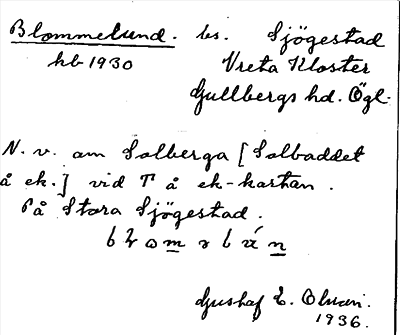 Blommelund. bs. Sjögestad
hb 1930 Vreta Kloster
Gullbergs hd. Ögl.
N. v. om Solberga [Solbaddet
å ek.] vid T å ek-kartan.
På Stora Sjögestad.
Gustaf E. Olsson.
1936.